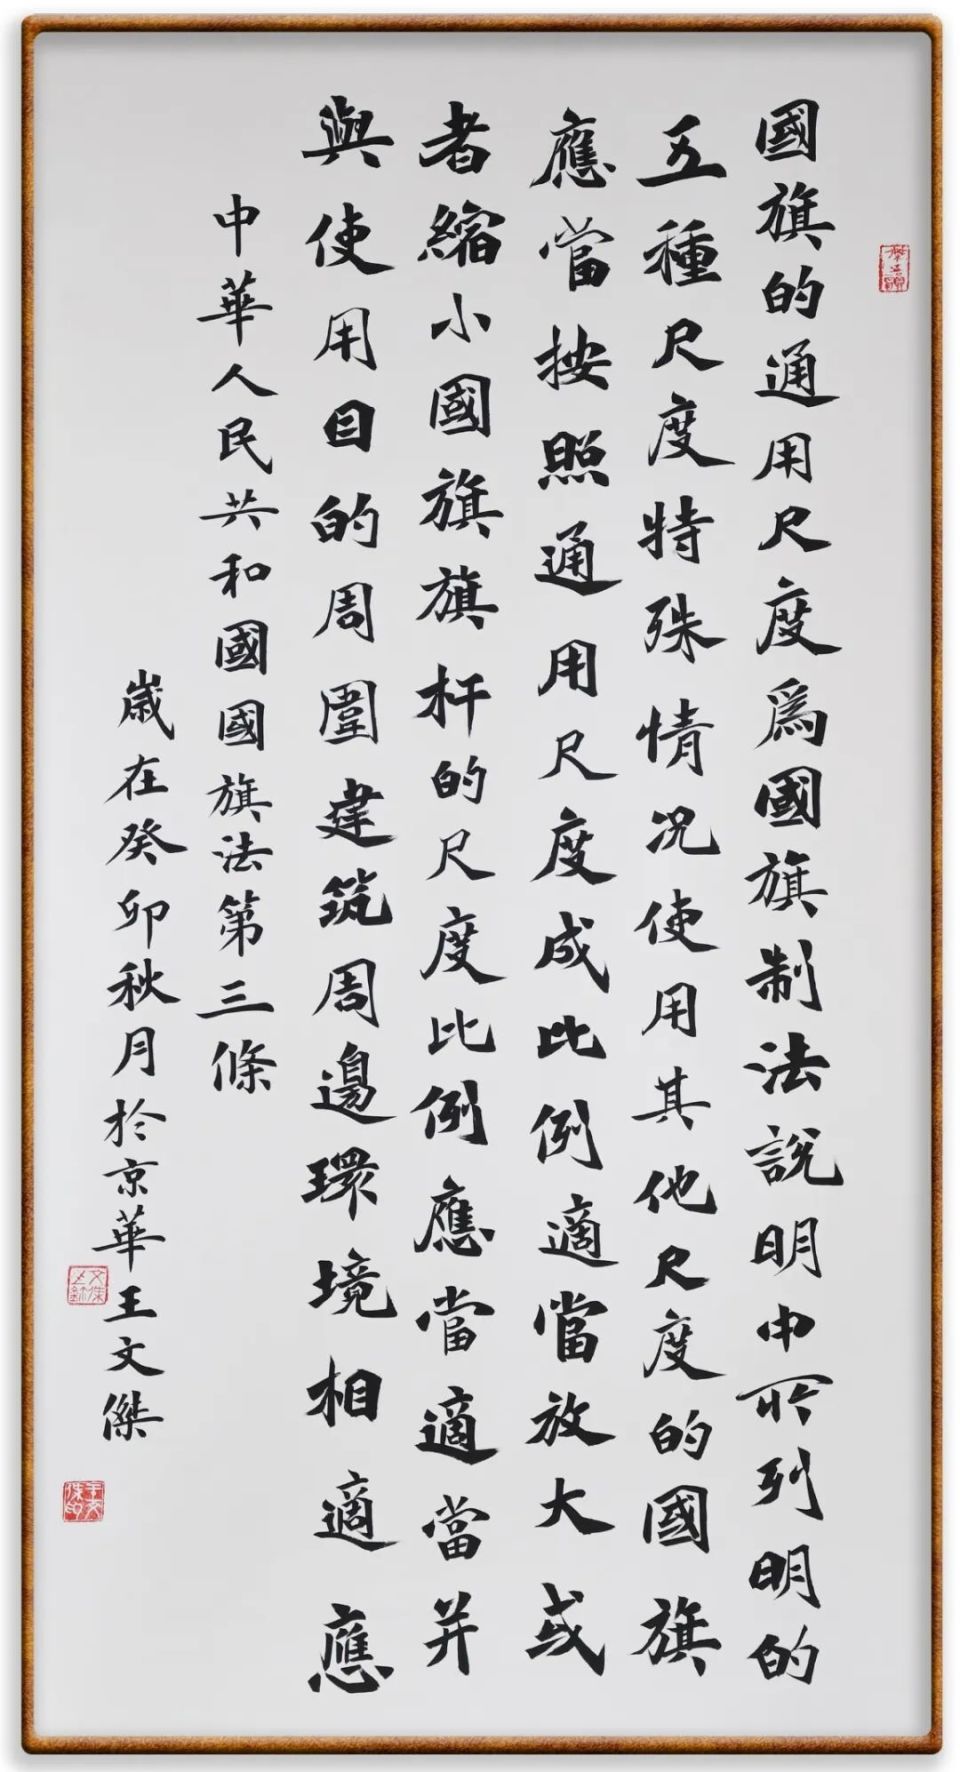 國旗的通用尺度爲國旗制法説明中所列明的
五種尺度特殊情况使用其他尺度的國旗
應當按照通用尺度成比例適當放大或
者縮小國旗旗杆的尺度比例應當適當并
與使用目的周圍建筑周邊環境相適應
中華人民共和國國旗法第三條
歲在癸卯秋月於京華王文傑